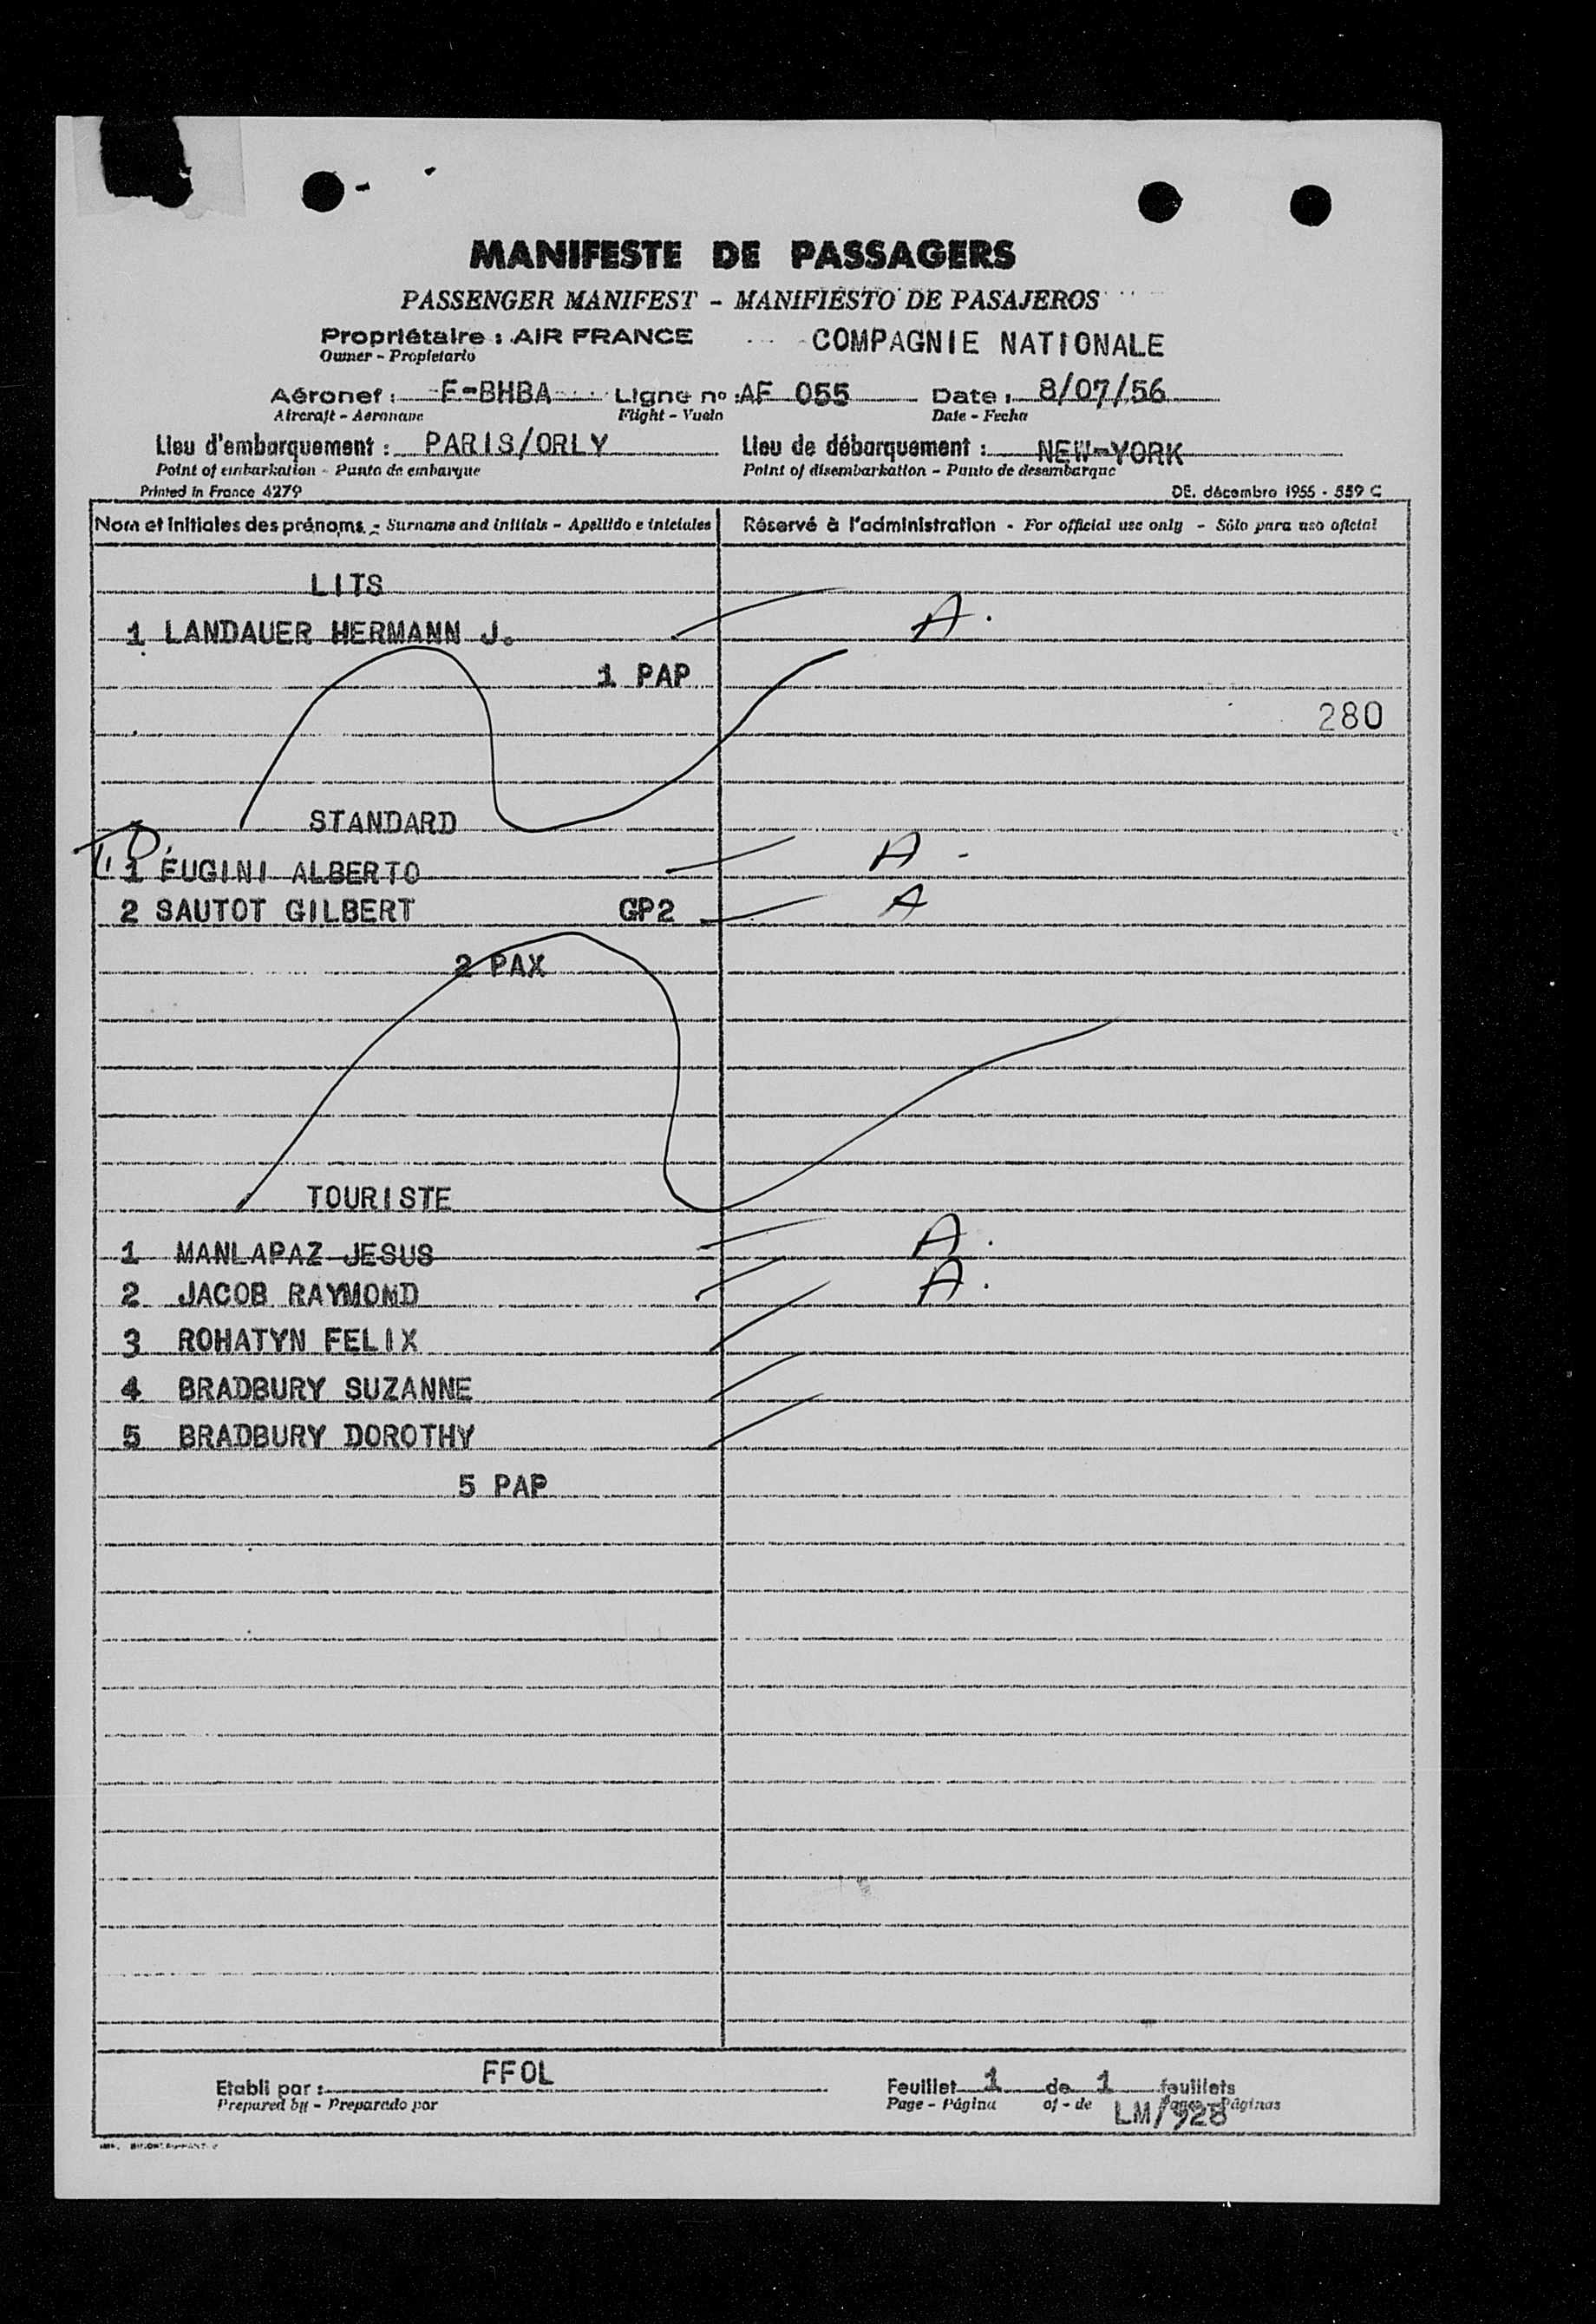 MANIFESTE DE PASSAGERS
PASSENGER MANIFEST - MANIFIESTO DE PASAJEROS
Propriétaire : AIR FRANCE COMPAGNIE NATIONALE
Owner - Propietario
Aéronef : F-BHBA Ligne no : AF 055 Date : 8/07/56
Aircraft - Aeronave Flight - Vuelo Date - Fecha
Lieu d'embarquement : PARIS/ORLY Lieu de débarquement : NEW-YORK
Point of embarkation - Punto de embarque Point of disembarkation - Punto de desembarque
Printed in France 4279 DE. décembre 1955 - 559 C
Nom et initiales des prénoms - Surname and initials - Apellido e iniciales Réservé à l'administration - For official use only - Sólo para uso oficial
LITS
1 LANDAUER HERMANN J. A.
1 PAP
280
STANDARD
1 FUGINI ALBERTO A -
2 SAUTOT GILBERT GP2 A
2 PAX
TOURISTE
1 MANLAPAZ JESUS A.
2 JACOB RAYMOND A.
3 ROHATYN FELIX
4 BRADBURY SUZANNE
5 BRADBURY DOROTHY
5 PAP
Etabli par : FFOL Feuillet 1 de 1 feuillets
Prepared by - Preparado por Page - Página of - de Pages - Páginas
LM/928